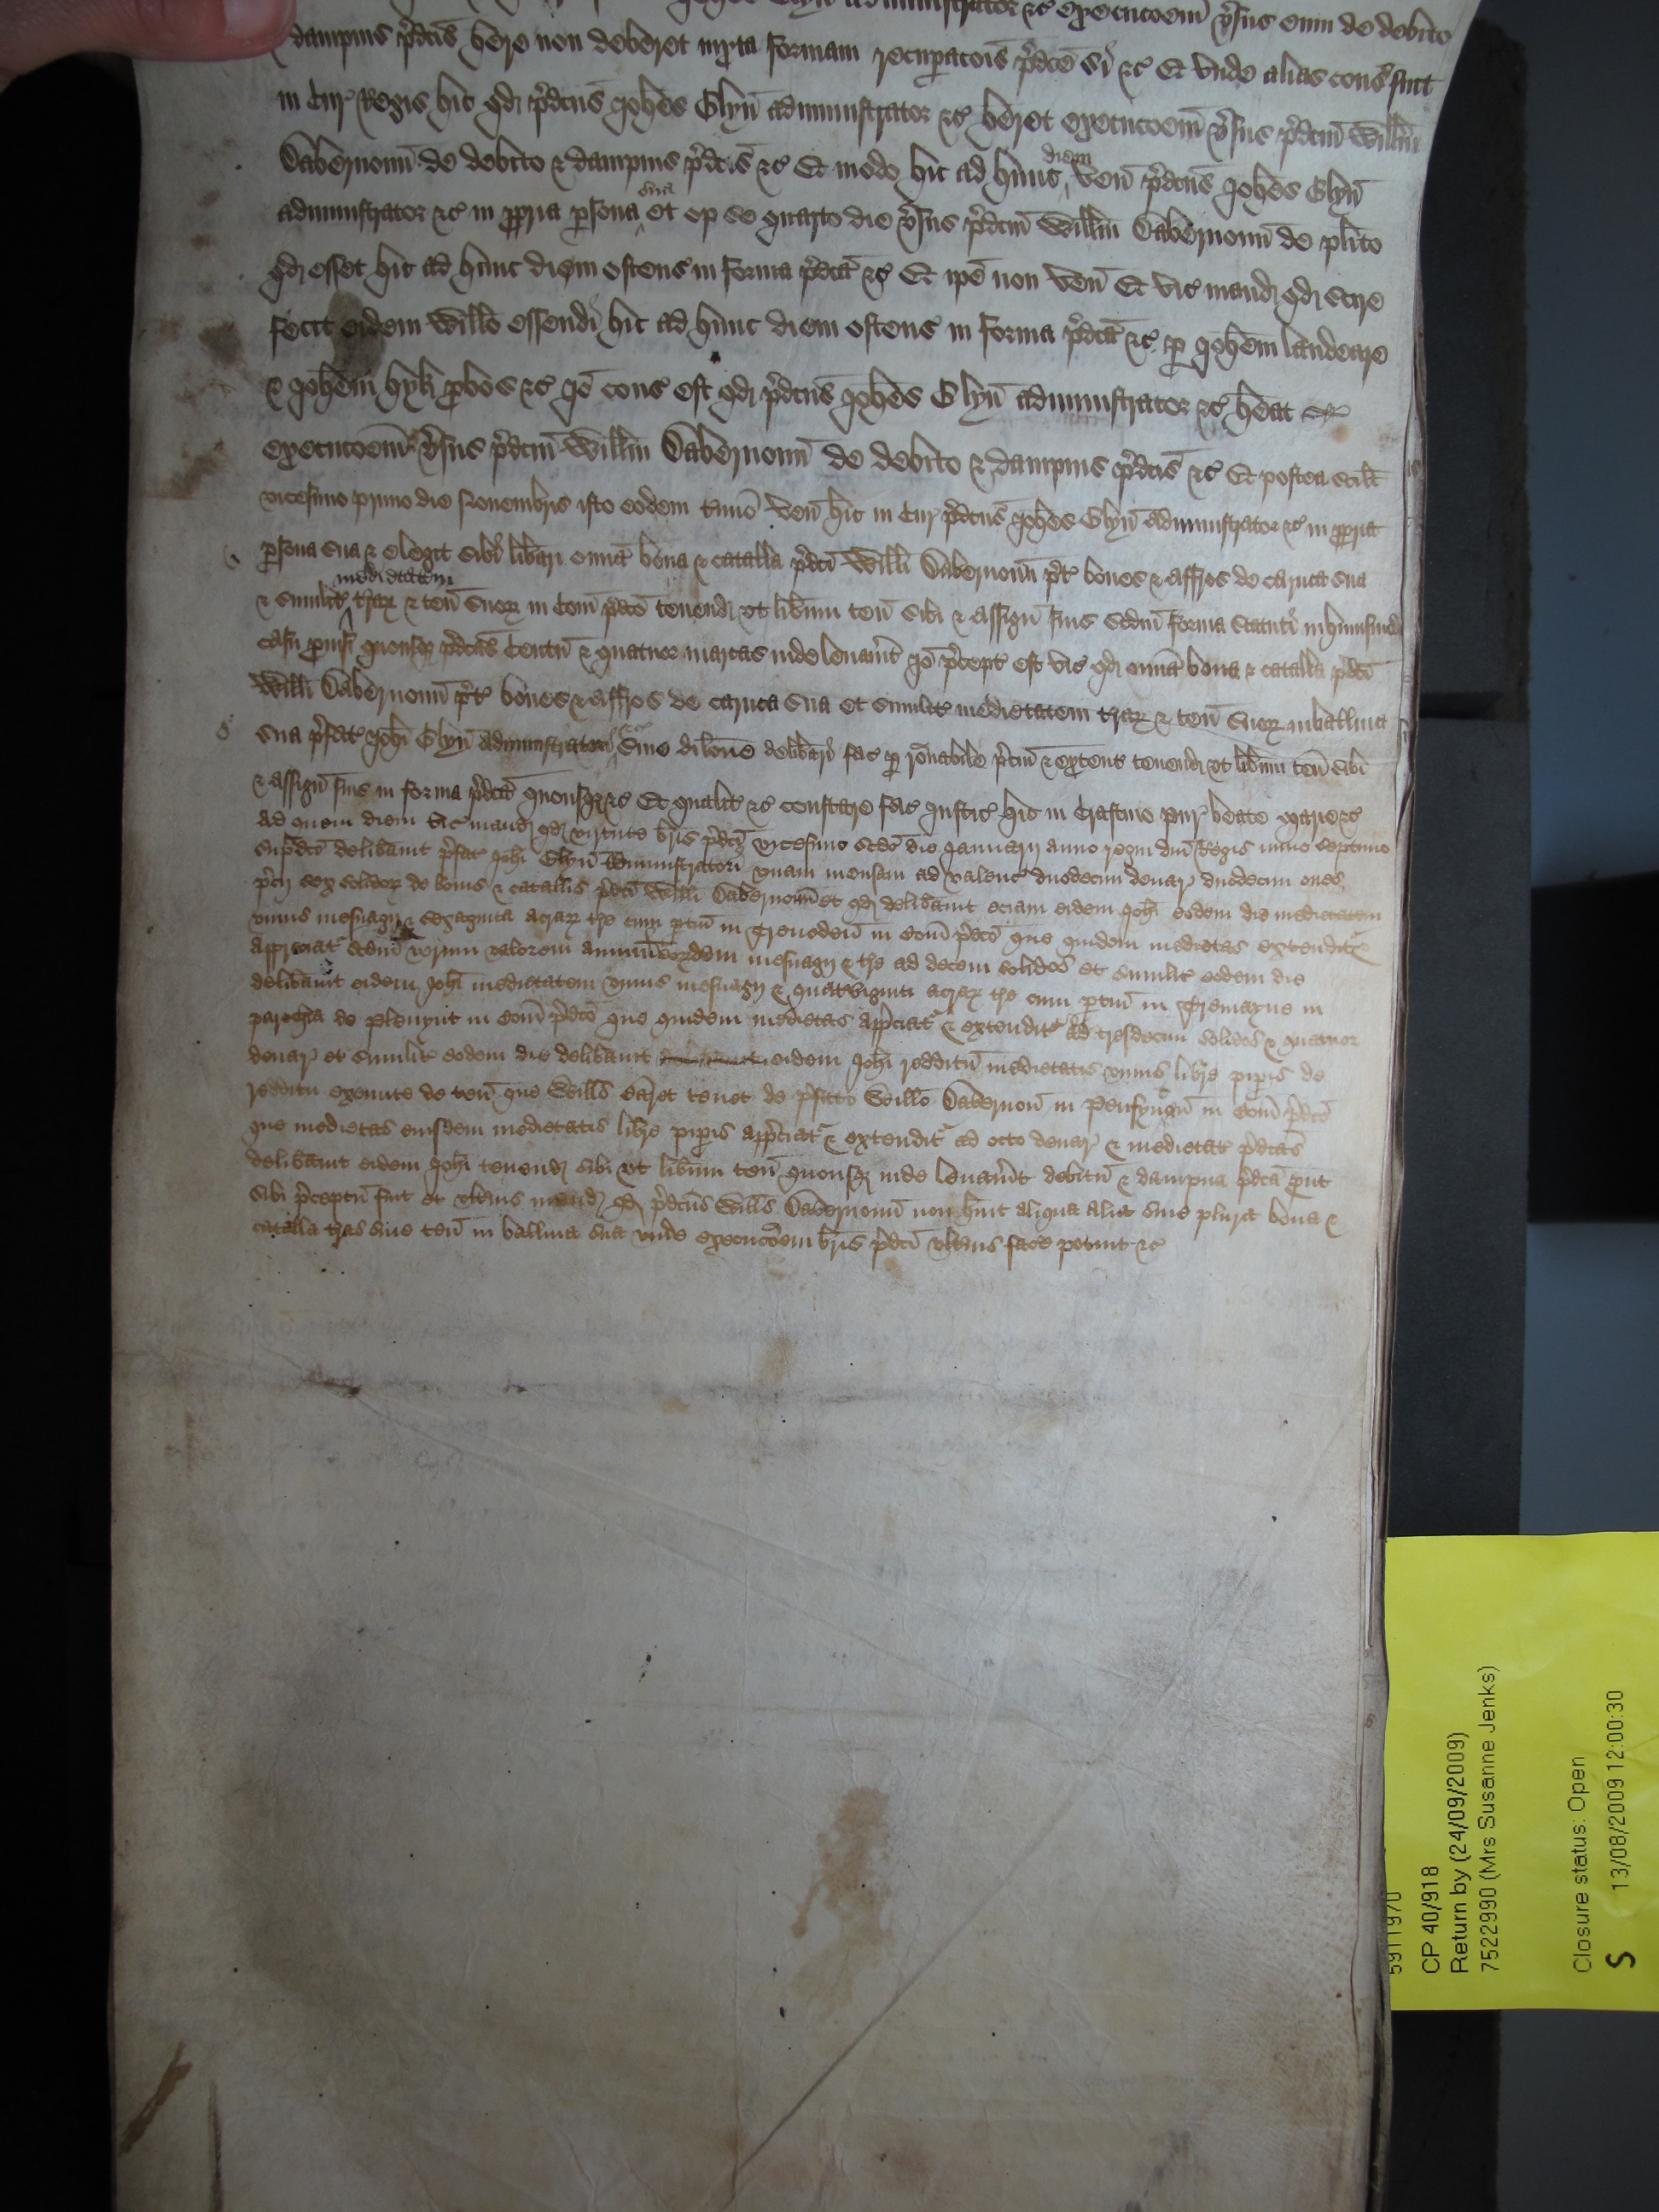 Joh̄es Glyn̄ administrator &c execucoem̄ v̓sus eum de debito
& dampnis p̓dc̄is h̄ere non deberet iuxta formam recup̓acois̄ p̓dc̄e si &c Et unde alias cons̄ fuit
in Cur̓ Regis hic qd̓ p̓dc̄us Joh̄es Glyn̄ administrator &c h̄eret execucoem̄ v̓sus p̓dc̄m Will̄m
Dabernoun̄ de debito & dampnis p̓dc̄is &c Et modo hic ad hunc diem ven̄ p̓dc̄us Joh̄es Glyn̄
administrator &c in p̱pria p̱sona sua et op se quarto die v̓sus p̓dc̄m Will̄m Dabernoun̄ de pl̄ito
qd̓ esset hic ad hunc diem ostens̄ in forma p̓dc̄a &c Et ip̄e non ven̄ Et vic̄ mand̓ qd̓ scire
fecit eidem Will̄o essendi hic ad hunc diem ostens̄ in forma p̓dc̄a &c p̱ Joh̄em Landeare
& Joh̄em hyk p̱bos &c Jō cons̄ est qd̓ p̓dc̄us Joh̄es Glyn̄ administrator &c h̄eat
execucoem̄ v̓sus p̓dc̄m Will̄m Dabernoun̄ de debito & dampnis p̓dc̄is &c Et postea scil̄t
vicesimo primo die Novembris isto eodem t̓mino ven̄ hic in Cur̓ p̓dc̄us Joh̄es Glyn̄ administrator &c in p̱pria
p̱sona sua & elegit sibi lib̄ari omnia bona & catalla p̓dc̄i Will̄i Dabernoun̄ p̓t̓ boves & affros de caruca sua
& similit̓ medietatem t̓rar̓ & ten̄ suor̓ in Com̄ p̓dc̄o tenend̓ ut lib̄um ten̄ sibi & assign̄ suis scdm̄ forma statuti in huiusmodi
casu p̱vis̄ quousq̓ p̓dc̄as Centu̅ & quatuor marcas inde levav̓it Jō p̓cept̄ est vic̄ qd̓ omnia bona & catalla p̓dc̄i
Will̄i Dabernoun̄ p̓t̓ boves & affros de caruca sua et similit̓ medietatem t̓rar̓ & ten̄ suor̓ in balliva
sua p̓fat̓ Joh̄i Glyn̄ administratori &c sine dil̄one delib̄ari fac̓ p̱ r̄onabile p̓ciu̅ & extent̄ tenend̓ ut lib̄um ten̄ sibi
& assign̄ suis in forma p̓dc̄a quousq̓ &c Et qualit̓ &c constare fac̓ Justic̓ hic in Crastino pur̓ beate Marie &c
ad quem diem vic̓ mand̓ qd̓ virtute br̄is p̓dc̄i vicesimo scd̄o die Januarij anno regni dn̄i Regis nunc septimo
sup̓dc̄o delib̄avit p̓fat̓ Joh̄i Glyn̄ administratori unam mensam ad valenc̓ duodecim denar̓ duodecim oves
p̓cij sex solidor̓ de bonis & catallis p̓dc̄i Will̄i Dabernoun̄ et qd̓ delib̄avit eciam eidem Joh̄i eodem die medietatem
unius mesuagij & sexaginta acrar̓ t̓re cum p̱tin̄ in Trevoden̄ in Com̄ p̓dc̄o que quidem medietas extendit̓ &
appreciat̓ scdm̄ verum valorem annuu̅ eor̓dem mesuagij & t̓re ad decem solidos et similit̓ eodem die
delib̄avit eidem Joh̄i medietatem unius mesuagij & quatviginti acrar̓ t̓re cum p̱tin̄ in Tremayne in
parochia de Plenynt in Com̄ p̓dc̄o que quidem medietas app̓ciat̓ & extendit̓ ad tresdecim solidos & quatuor
denar̓ et similit̓ eodem die delib̄avit eidem Joh̄i redditu̅ medietatis unius libre pip̱is de
redditu exeunte de ten̄ que Will̄s tenet de p̓fato Will̄o Dabernon̄ in in Com̄ p̓dc̄o
que medietas eiusdem medietatis libre pip̱is app̓ciat̓ & extendit̓ ad octo denar̓ & medietat̓ p̓dc̄as
delib̄avit eidem Joh̄i tenend̓ sibi ut lib̄um ten̄ quousq̓ inde levav̓it debitu̅ & dampna p̓dc̄a p̱ut
sibi p̓ceptu̅ fuit et ult̓ius mand̓ qd̓ p̓dc̄us Will̄s Dabernoun̄ non h̄uit aliqua alia sive plura bona &
catalla t̓ras sive ten̄ in balliva sua unde execuco̅em br̄is p̓dc̄i ult̓ius fac̓e potuit &c
5911970
CP 40/918
Return by (24/09/2009)
7522990 (Mrs Susanne Jenks)
Closure status: Open
S 13/08/2009 12:00:30